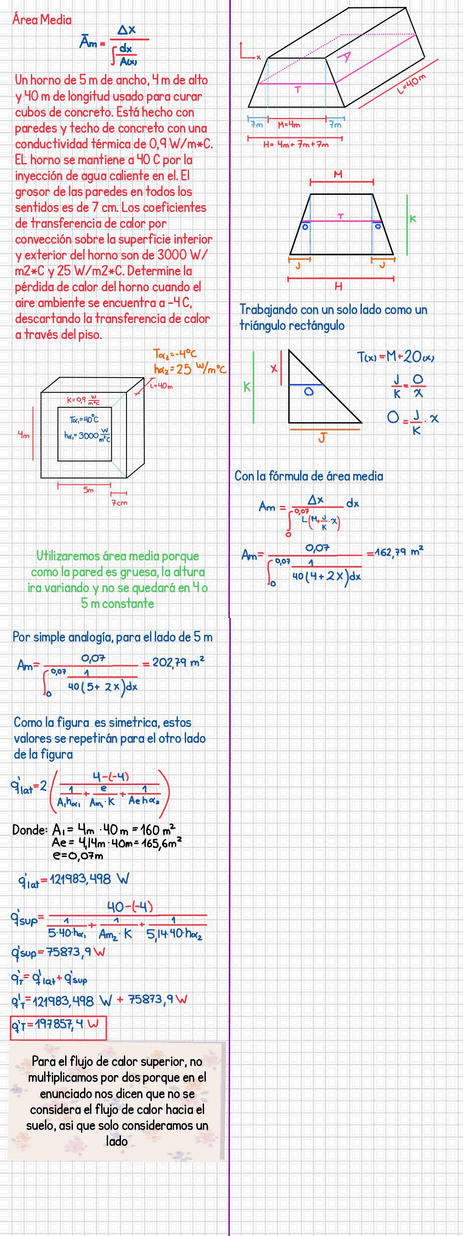 Área Media
Ām = Δx / ∫ dx/A(x)
Un horno de 5 m de ancho, 4 m de alto
y 40 m de longitud usado para curar
cubos de concreto. Está hecho con
paredes y techo de concreto con una
conductividad térmica de 0,9 W/m*C.
EL horno se mantiene a 40 C por la
inyección de agua caliente en el. El
grosor de las paredes en todos los
sentidos es de 7 cm. Los coeficientes
de transferencia de calor por
convección sobre la superficie interior
y exterior del horno son de 3000 W/
m2*C y 25 W/m2*C. Determine la
pérdida de calor del horno cuando el
aire ambiente se encuentra a -4 C,
descartando la transferencia de calor
a través del piso.
Tα₂=-4°C
hα₂=25 W/m°C
L=40m
K=0,9 W/m°C
Tα₁=40°C
hα₁=3000 W/m²C
4m
5m
7cm
Utilizaremos área media porque
como la pared es gruesa, la altura
ira variando y no se quedará en 4 o
5 m constante
Por simple analogía, para el lado de 5 m
Am = 0,07 / ∫₀^0,07 1/40(5+2x) dx = 202,79 m²
Como la figura es simetrica, estos
valores se repetirán para el otro lado
de la figura
q̇lat=2 ( 4-(-4) / 1/A₁hα₁ + e/Am₁·K + 1/Aehα₂ )
Donde: A₁ = 4m · 40m = 160 m²
Ae = 4,14m · 40m = 165,6m²
e=0,07m
q̇lat = 121983,498 W
q̇sup = 40-(-4) / 1/5·40·hα₁ + 1/Am₂·K + 1/5,14·40·hα₂
q̇sup = 75873,9 W
q̇T = q̇lat + q̇sup
q̇T = 121983,498 W + 75873,9 W
q̇T = 197857,4 W
Para el flujo de calor superior, no
multiplicamos por dos porque en el
enunciado nos dicen que no se
considera el flujo de calor hacia el
suelo, asi que solo consideramos un
lado
x
A
T
L=40m
7m M=4m 7m
H= 4m+7m+7m
M
T
K
O O
J J
H
Trabajando con un solo lado como un
triángulo rectángulo
K
X
O
J
T(x) = M+2O(x)
J/K = O/X
O = J/K · x
Con la fórmula de área media
Am = Δx / ∫₀^0,07 1/L(M+J/K·x) dx
Am = 0,07 / ∫₀^0,07 1/40(4+2x) dx = 162,79 m²